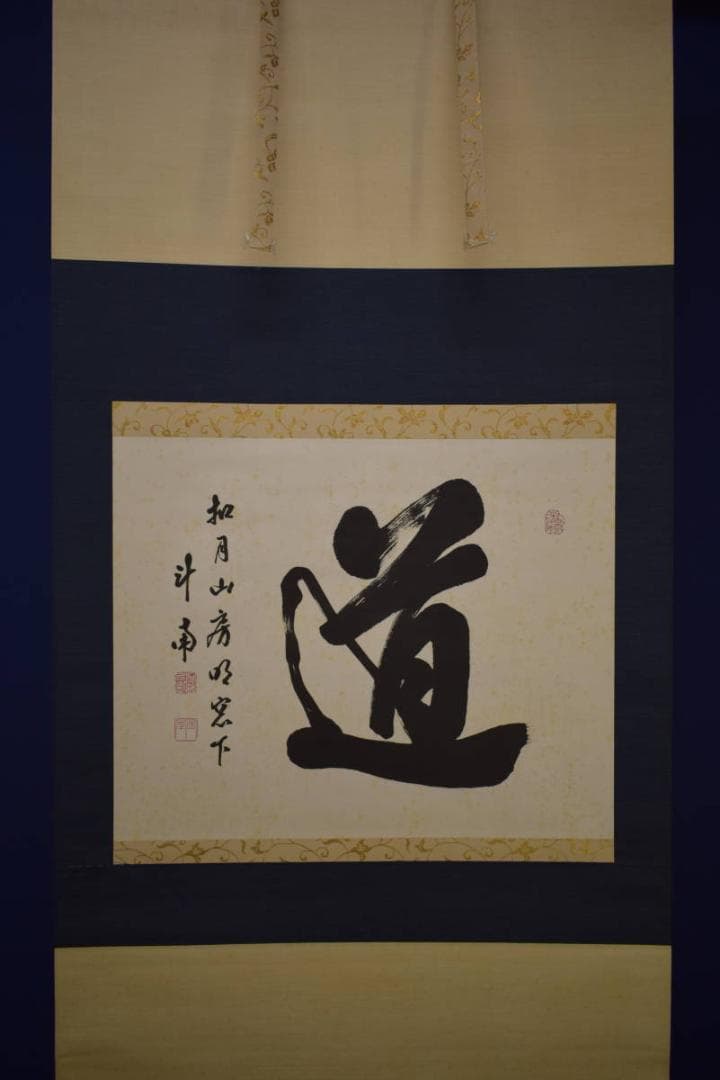 道
扣月山房明窓下
斗南